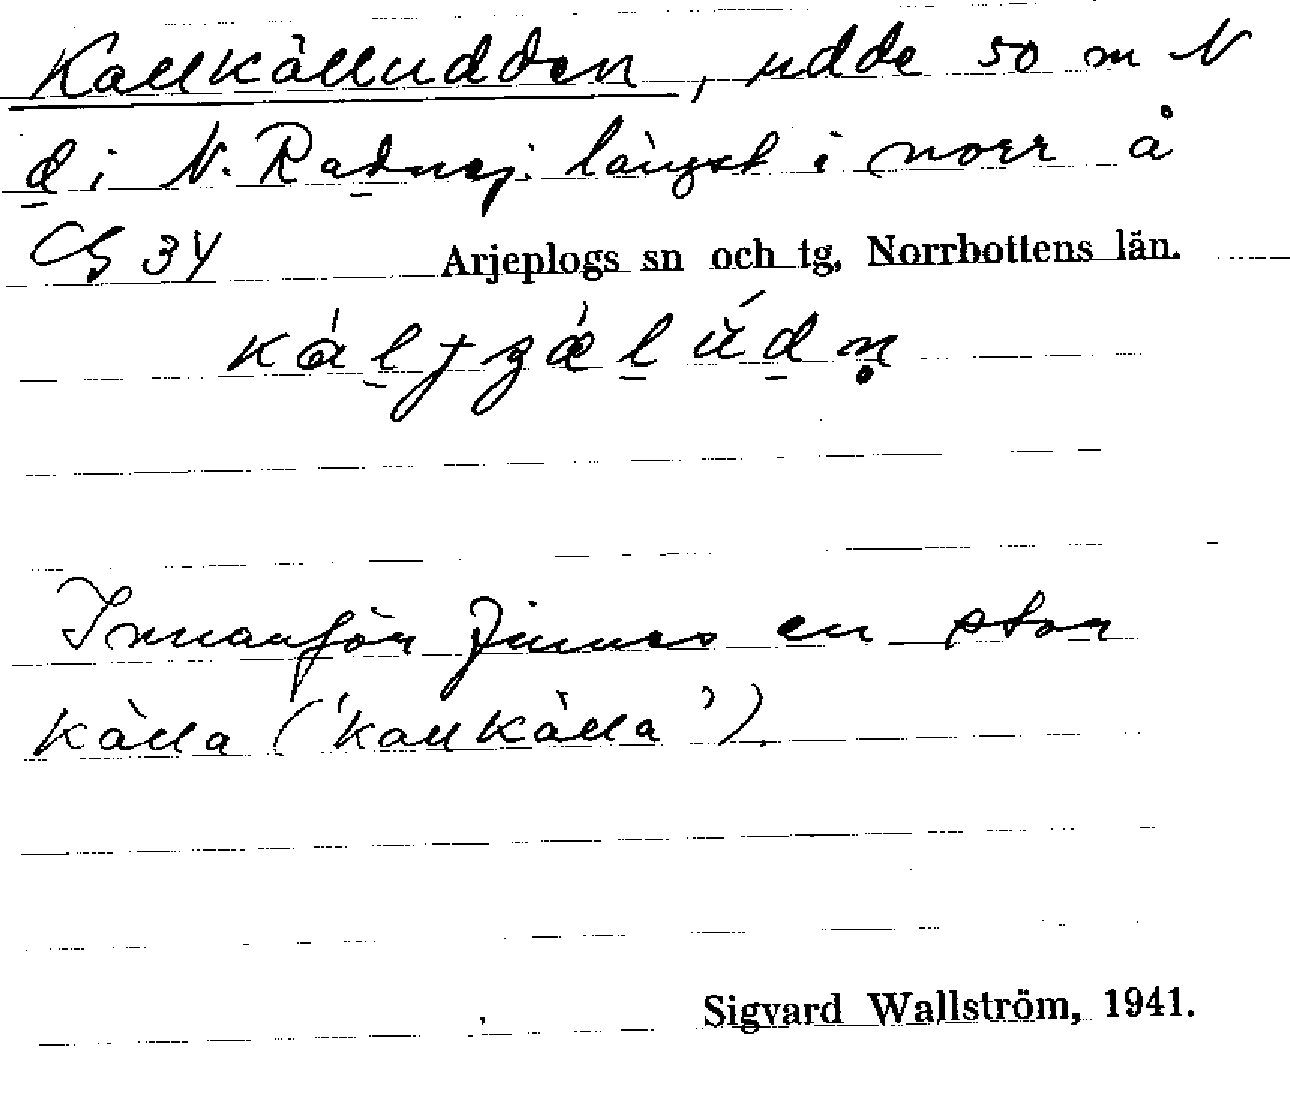 Kallkälludden, udde 50 m N
d i N. Radnej. längst i norr å
CG 34 Arjeplogs sn och tg, Norrbottens län.
Innanför finnes en stor
källa ('kallkälla').
Sigvard Wallström, 1941.